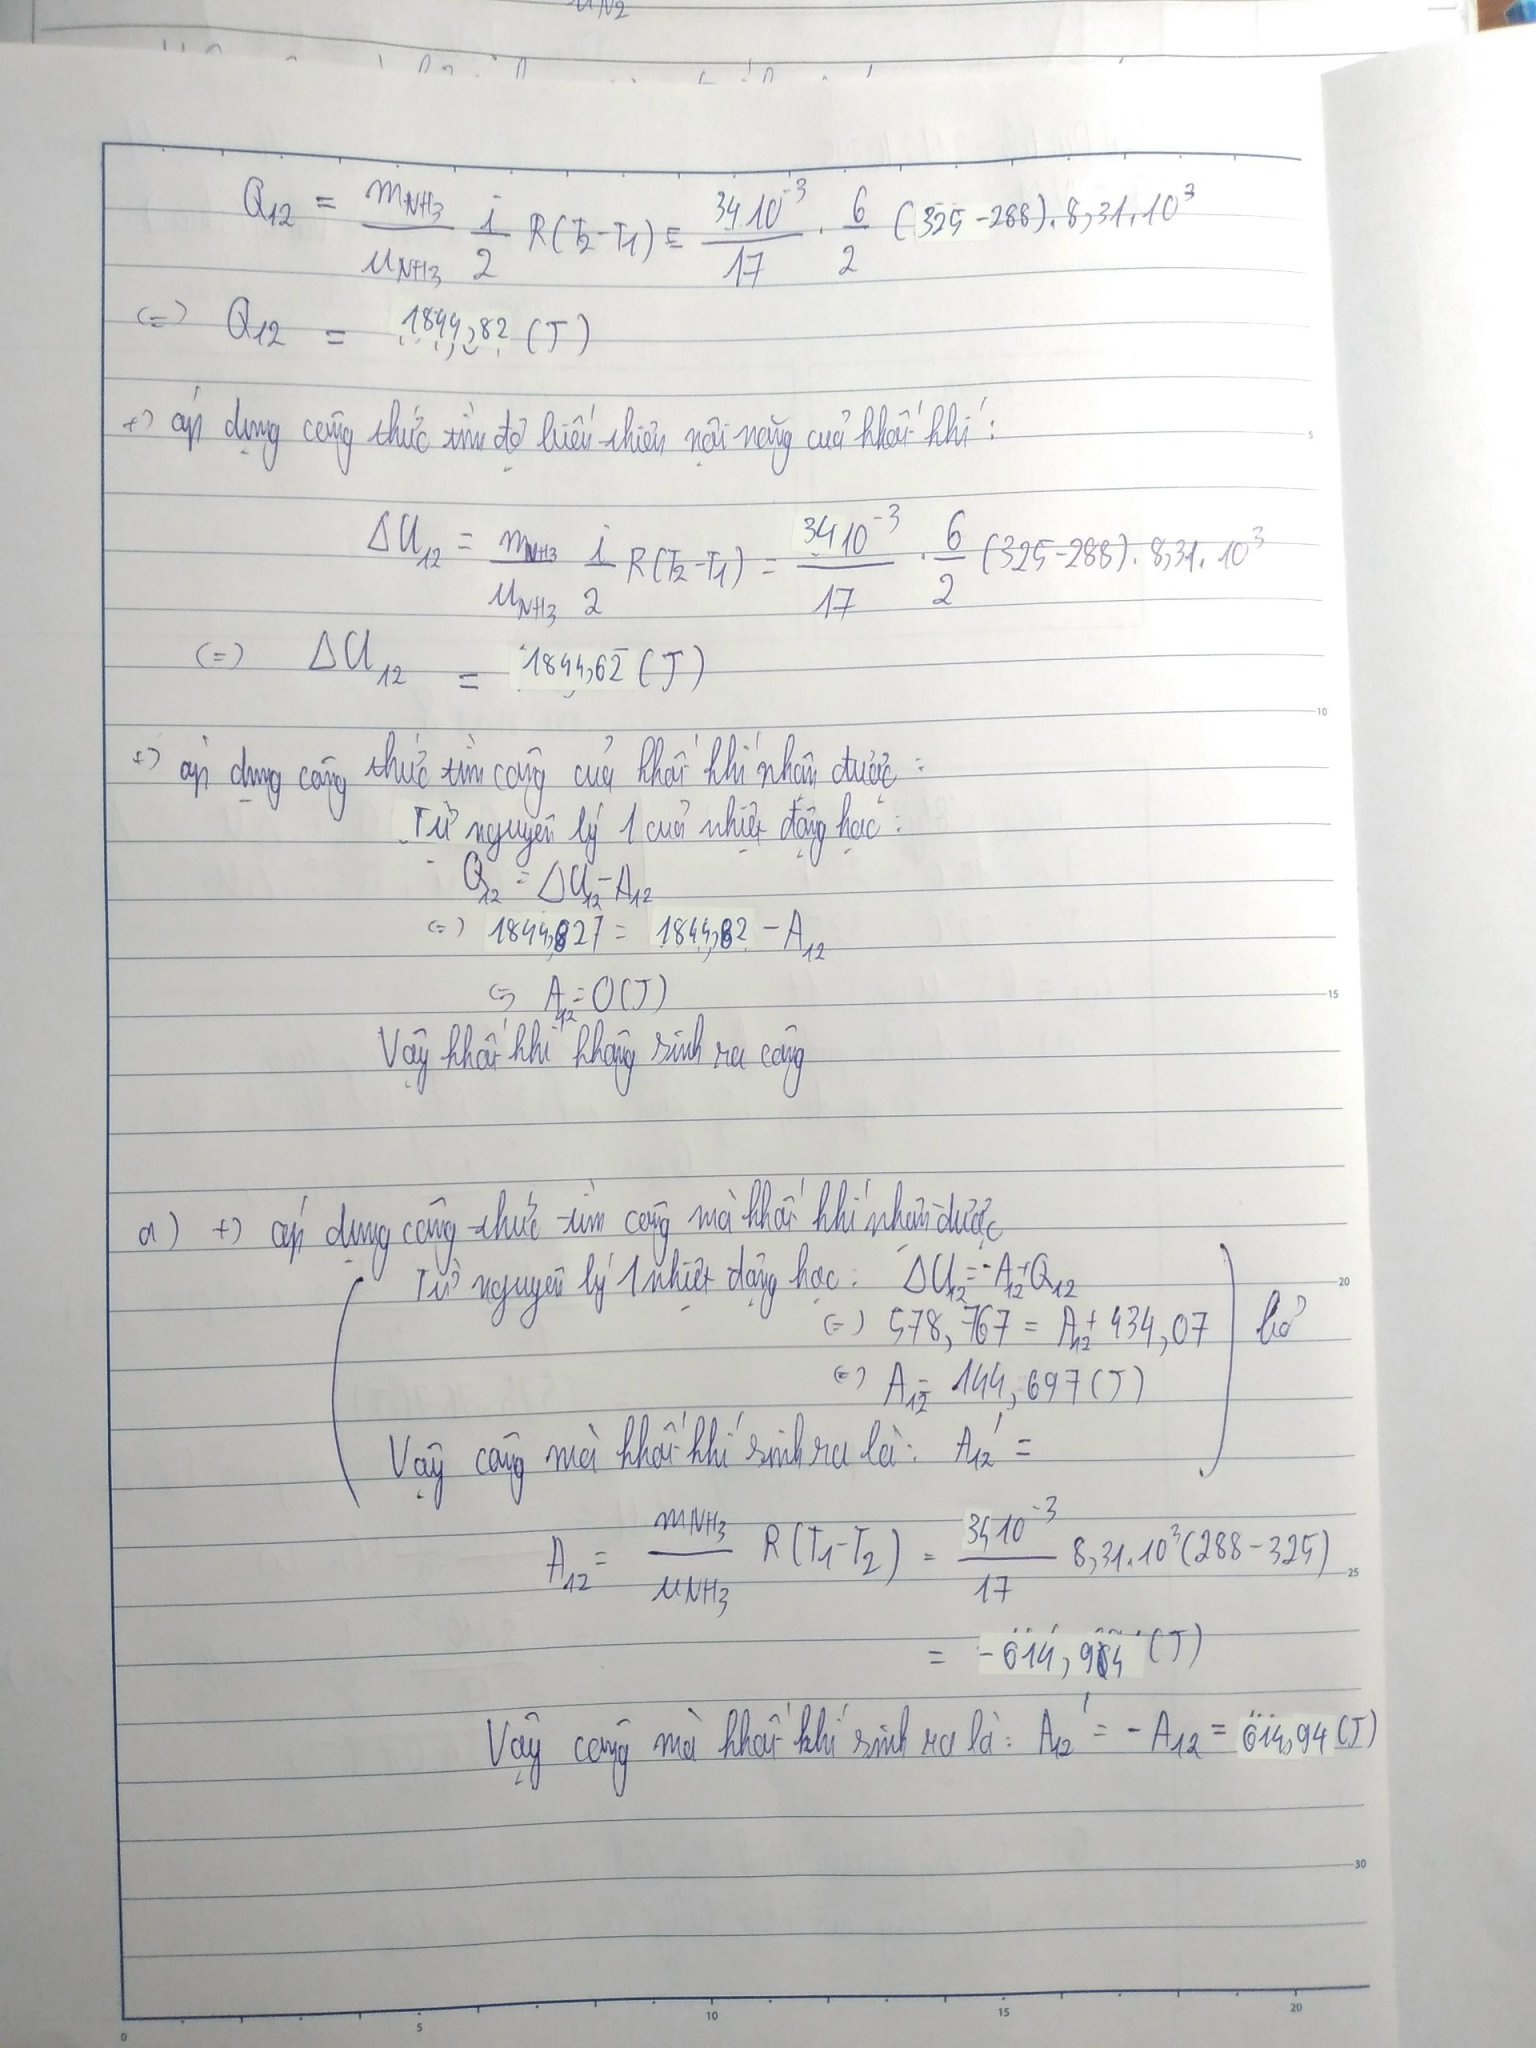 μN2
Q12 = mNH3/μNH3 i/2 R(T2-T1) = 34 10^-3/17 . 6/2 (325-288). 8,31.10^3
(=) Q12 = 1844,82 (J)
+) áp dụng công thức tìm độ biến thiên nội năng của khối khí:
ΔU12 = mNH3/μNH3 i/2 R(T2-T1) = 34 10^-3/17 . 6/2 (325-288). 8,31. 10^3
(=) ΔU12 = 1844,62 (J)
+) áp dụng công thức tìm công của khối khí nhận được:
Từ nguyên lý 1 của nhiệt động học:
Q12 = ΔU12 - A12
(=) 1844,827 = 1844,82 - A12
(=) A12 = 0(J)
Vậy khối khí không sinh ra công
a) +) áp dụng công thức tìm công mà khối khí nhận được
Từ nguyên lý 1 nhiệt động học: ΔU12 = -A12 + Q12
(=) 578,767 = A12 + 434,07 bỏ
(=) A12 = 144,697(J)
Vậy công mà khối khí sinh ra là: A12' =
A12 = mNH3/μNH3 R(T1-T2) = 34 10^-3/17 8,31.10^3(288-325)
= -614,94 (J)
Vậy công mà khối khí sinh ra là: A12' = -A12 = 614,94 (J)
5
10
15
20
25
30
0 5 10 15 20